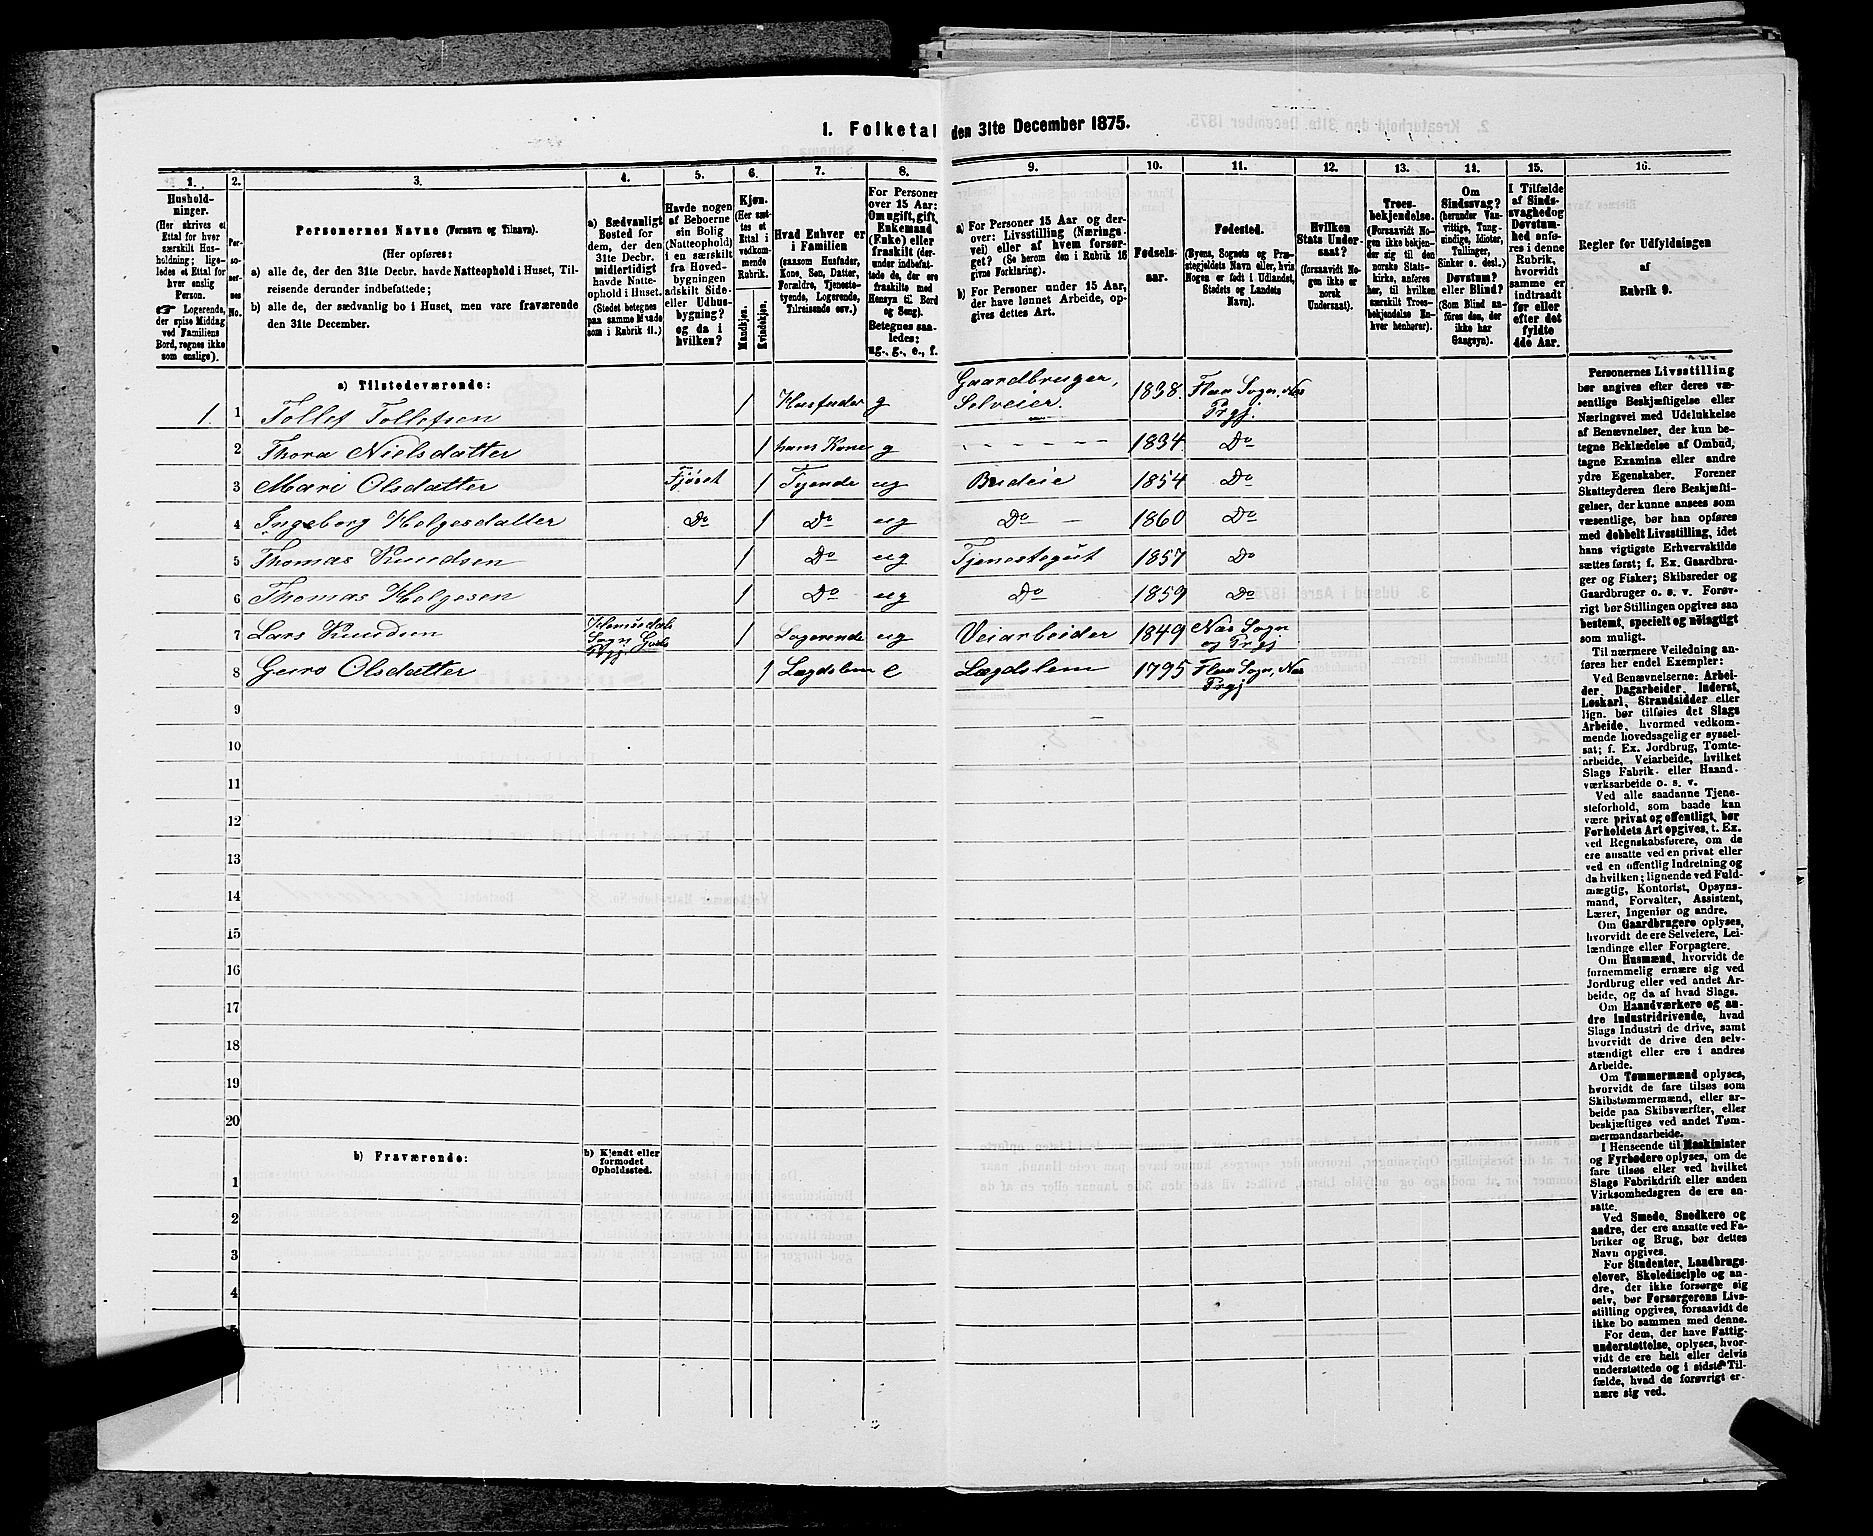 1. Folketal den 31te December 1875.
1. 2. 3. 4. 5. 6. 7. 8. 9. 10. 11. 12. 13. 14. 15. 16.
Husholdninger.
(Her skrives et Ettal for hver særskilt Husholdning; ligeledes et Ettal for hver enslig Person.
☞ Logerende, der spise Middag ved Familiens Bord, regnes ikke som enslige).
Personernes No.
Personernes Navne (Fornavn og Tilnavn).
(Her opføres:
a) alle de, der den 31te Decbr. havde Natteophold i Huset, Tilreisende derunder indbefattede;
b) alle de, der sædvanlig bo i Huset, men vare fraværende den 31te December.
a) Sædvanligt Bosted for dem, der den 31te Decbr. midlertidigt havde Natteophold i Huset. (Stedet betegnes paa samme Maade som i Rubrik 11.)
Havde nogen af Beboerne sin Bolig (Natteophold) i en særskilt fra Hovedbygningen adskilt Side- eller Udhusbygning? og da i hvilken?
Kjøn.
(Her sættes et Ettal i vedkommende Rubrik.
Mandkjøn. Kvindekjøn.
Hvad Enhver er i Familien
(saasom Husfader, Kone, Søn, Datter, Forældre, Tjenestetyende, Logerende, Tilreisende osv.)
For Personer over 15 Aar: Om ugift, gift, Enkemand (Enke) eller fraskilt (derunder indbefattede de, der ere fraskilte med Hensyn til Bord og Seng).
Betegnes saaledes:
ug., g., e., f.
a) For Personer 15 Aar og derover: Livsstilling (Næringsvei) eller af hvem forsørget? (Se herom den i Rubrik 16 givne Forklaring).
b) For Personer under 15 Aar, der have lønnet Arbeide, opgives dettes Art.
Fødselsaar.
Fødested.
(Byens, Sognets og Præstegjeldets Navn eller, hvis Nogen er født i Udlandet, Stedets og Landets Navn).
Hvilken Stats Undersaat?
(forsaavidt Nogen ikke er norsk Undersaat).
Troesbekjendelse.
(Forsaavidt Nogen ikke bekjender sig til den norske Statskirke, anføres her, til hvilken særskilt Troesbekjendelse Enhver henhører).
Om Sindssvag? (herunder Vanvittige, Tungsindige, Idioter, Tullinger, Sinker o. desl.). Døvstum? eller Blind? (Som Blind anføres den, der ikke har Gangsyn).
I Tilfælde af Sindssvaghed og Døvstumhed anføres i denne Rubrik, hvorvidt samme er indtraadt før eller efter det fyldte 4de Aar.
Regler for Udfyldningen af Rubrik 9.
a) Tilstedeværende:
1. 1 Tollef Tollefsen 1 Husfader g Gaardbruger, Selveier. 1838. Flaa Sogn, Nes Prgj.
2 Thora Nielsdatter 1 hans Kone g - - - - - 1834 Do
3 Mari Olsdatter Fjøset 1 Tjende ug Budeie 1854 Do
4 Ingeborg Helgesdatter Do 1 Do ug Do - 1860 Do
5 Thomas Knudsen 1 Do ug Tjenestegut 1857 Do
6 Thomas Helgesen 1 Do ug Do 1859 Do
7 Lars Knudsen Hemsedals Sogn Gols Prgj. 1 Logerende ug Veiarbeider 1849 Nes Sogn og Prgj
8 Guro Olsdatter 1 Lægdslem e Lægdslem 1795 Flaa Sogn, Nes Prgj.
9
10
11
12
13
14
15
16
17
18
19
20
b) Fraværende:
b) Kjendt eller formodet Opholdssted.
1
2
3
4
Personernes Livsstilling
bør angives efter deres væ-
sentlige Beskjæftigelse eller
Næringsvei med Udelukkelse
af Benævnelser, der kun be-
tegne Beklædelse af Ombud,
tagne Examina eller andre
ydre Egenskaber. Forener
Skatteyderen flere Beskjæfti-
gelser, der kunne ansees som
væsentlige, bør han opføres
med dobbelt Livsstilling, idet
hans vigtigste Erhvervskilde
sættes først; f. Ex. Gaardbru-
ger og Fisker; Skibsreder og
Gaardbruger o. s. v. Forøv-
rigt bør Stillingen opgives saa
bestemt, specielt og nøiagtigt
som muligt.
Til nærmere Veiledning an-
føres her endel Exempler:
Ved Benævnelserne: Arbei-
der, Dagarbeider, Inderst,
Løskarl, Strandsidder eller
lign. bør tilføies det Slags
Arbeide, hvormed vedkom-
mende hovedsagelig er syssel-
sat; f. Ex. Jordbrug, Tomte-
arbeide, Veiarbeide, hvilket
Slags Fabrik- eller Haand-
værksarbeide o. s. v.
Ved alle saadanne Tjene-
steforhold, som baade kan
være privat og offentligt, bør
Forholdets Art opgives, t. Ex.
ved Regnskabsførere, om de
ere ansatte ved en privat eller
ved en offentlig Indretning og
da hvilken; lignende ved Fuld-
mægtig, Kontorist, Opsyns-
mand, Forvalter, Assistent,
Lærer, Ingeniør og andre.
Om Gaardbrugere oplyses,
hvorvidt de ere Selveiere, Lei-
lændinge eller Forpagtere.
Om Husmænd, hvorvidt de
fornemmelig ernære sig ved
Jordbrug eller ved andet Ar-
beide, og da af hvad Slags.
Om Haandværkere og an-
dre industridrivende, hvad
Slags Industri de drive, samt
hvorvidt de drive den selv-
stændigt eller ere i andres
Arbeide.
Om Tømmermænd oplyses,
hvorvidt de fare tilsøs som
Skibstømmermænd, eller ar-
beide paa Skibsværfter, eller
beskjæftiges ved andet Tøm-
mermandsarbeide.
I Henseende til Maskinister
og Fyrbødere oplyses, om de
fare tilsøs eller ved hvilket
Slags Fabrikdrift eller anden
Virksomhedsgren de ere an-
satte.
Ved Smede, Snedkere og
andre, der ere ansatte ved Fa-
briker og Brug, bør dettes
Navn opgives.
For Studenter, Landbrugs-
elever, Skoledisciple og an-
dre, der ikke forsørge sig
selv, bør Forsørgerens Livs-
stilling opgives, forsaavidt de
ikke bo sammen med denne.
For dem, der have Fattig-
understøttelse, oplyses, hvor-
vidt de ere helt eller delvis
understøttede og i sidste Til-
fælde, hvad de forøvrigt er-
nære sig ved.